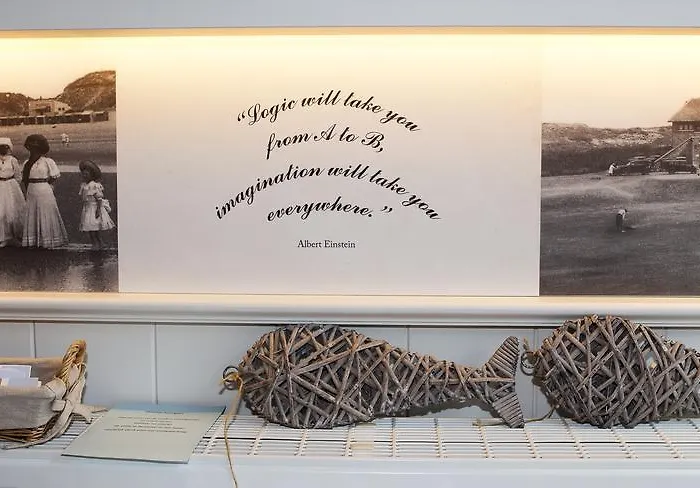 “Logic will take you
from A to B,
imagination will take you
everywhere.”
Albert Einstein